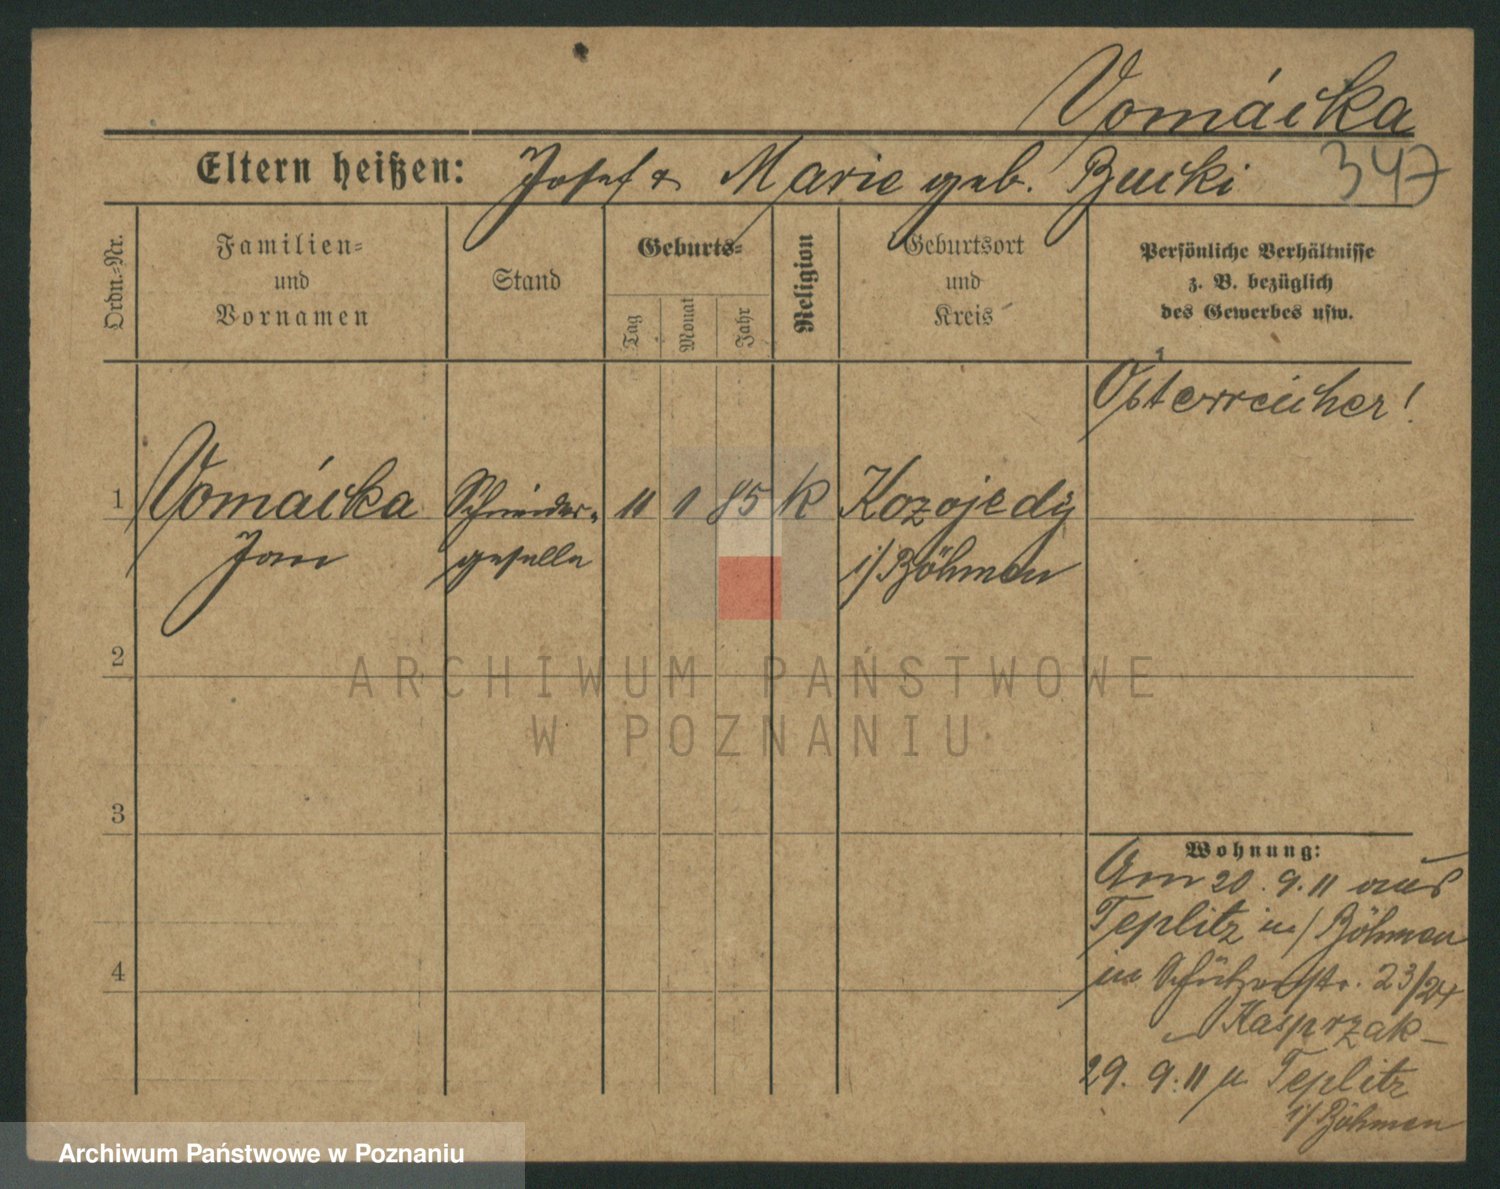 Vomácka
Eltern heißen: Josef & Marie geb. Bucki 347
Ordn.-Nr.
Familien-
und
Vornamen
Stand
Geburts-
Tag
Monat
Jahr
Religion
Geburtsort
und
Kreis
Persönliche Verhältnisse
z. B. bezüglich
des Gewerbes usw.
Österreicher!
1 Vomácka Schneider- 11 1 85 k Kozojedy
Jan geselle i/Böhmen
2
ARCHIWUM PAŃSTWOWE
W POZNANIU
3
Wohnung:
Am 20.9.11 aus
Teplitz in/Böhmen
in Schützenstr. 23/24
4
Kasprzak
29. 9. 11 n Teplitz
i/Böhmen
Archiwum Państwowe w Poznaniu